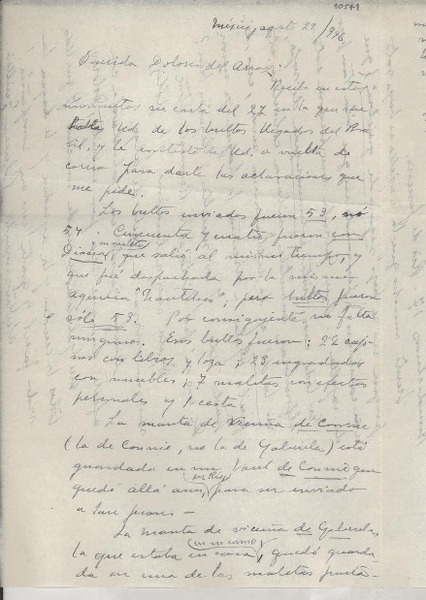 10541
México, agosto 29/946
Querida Dolores del Amor:
Recibo en estos
momentos su carta del 27 en la que me
habla Ud. de los bultos llegados del Bra-
sil, y le contesto a Ud. a vuelta de
correo para darle las aclaraciones que
me pide.
Los bultos enviados fueron 53, no
54. Cincuenta y cuatro fueron con
Diana, que salió al mismo tiempo, y
y maneta
que fué despachada por la misma
agencia "Cantelvas"; pero bultos fueron
sólo 53. Por consiguiente no falta
ninguno. Esos bultos fueron: 22 cajo-
nes con libros y loza; 23 engradados
con muebles; 7 maletas con efectos
personales y 1 cesta.
La manta de vicuña de Connie
(la de Connie, no la de Gabriela) está
guardada en un baul de Connie que
quedó allá aún, para ser enviado
en Rio
a San Juan.—
La manta de vicuña de Gabriela,
la que estaba en casa, quedó guarda-
en mi cama
da en una de las maletas justa-